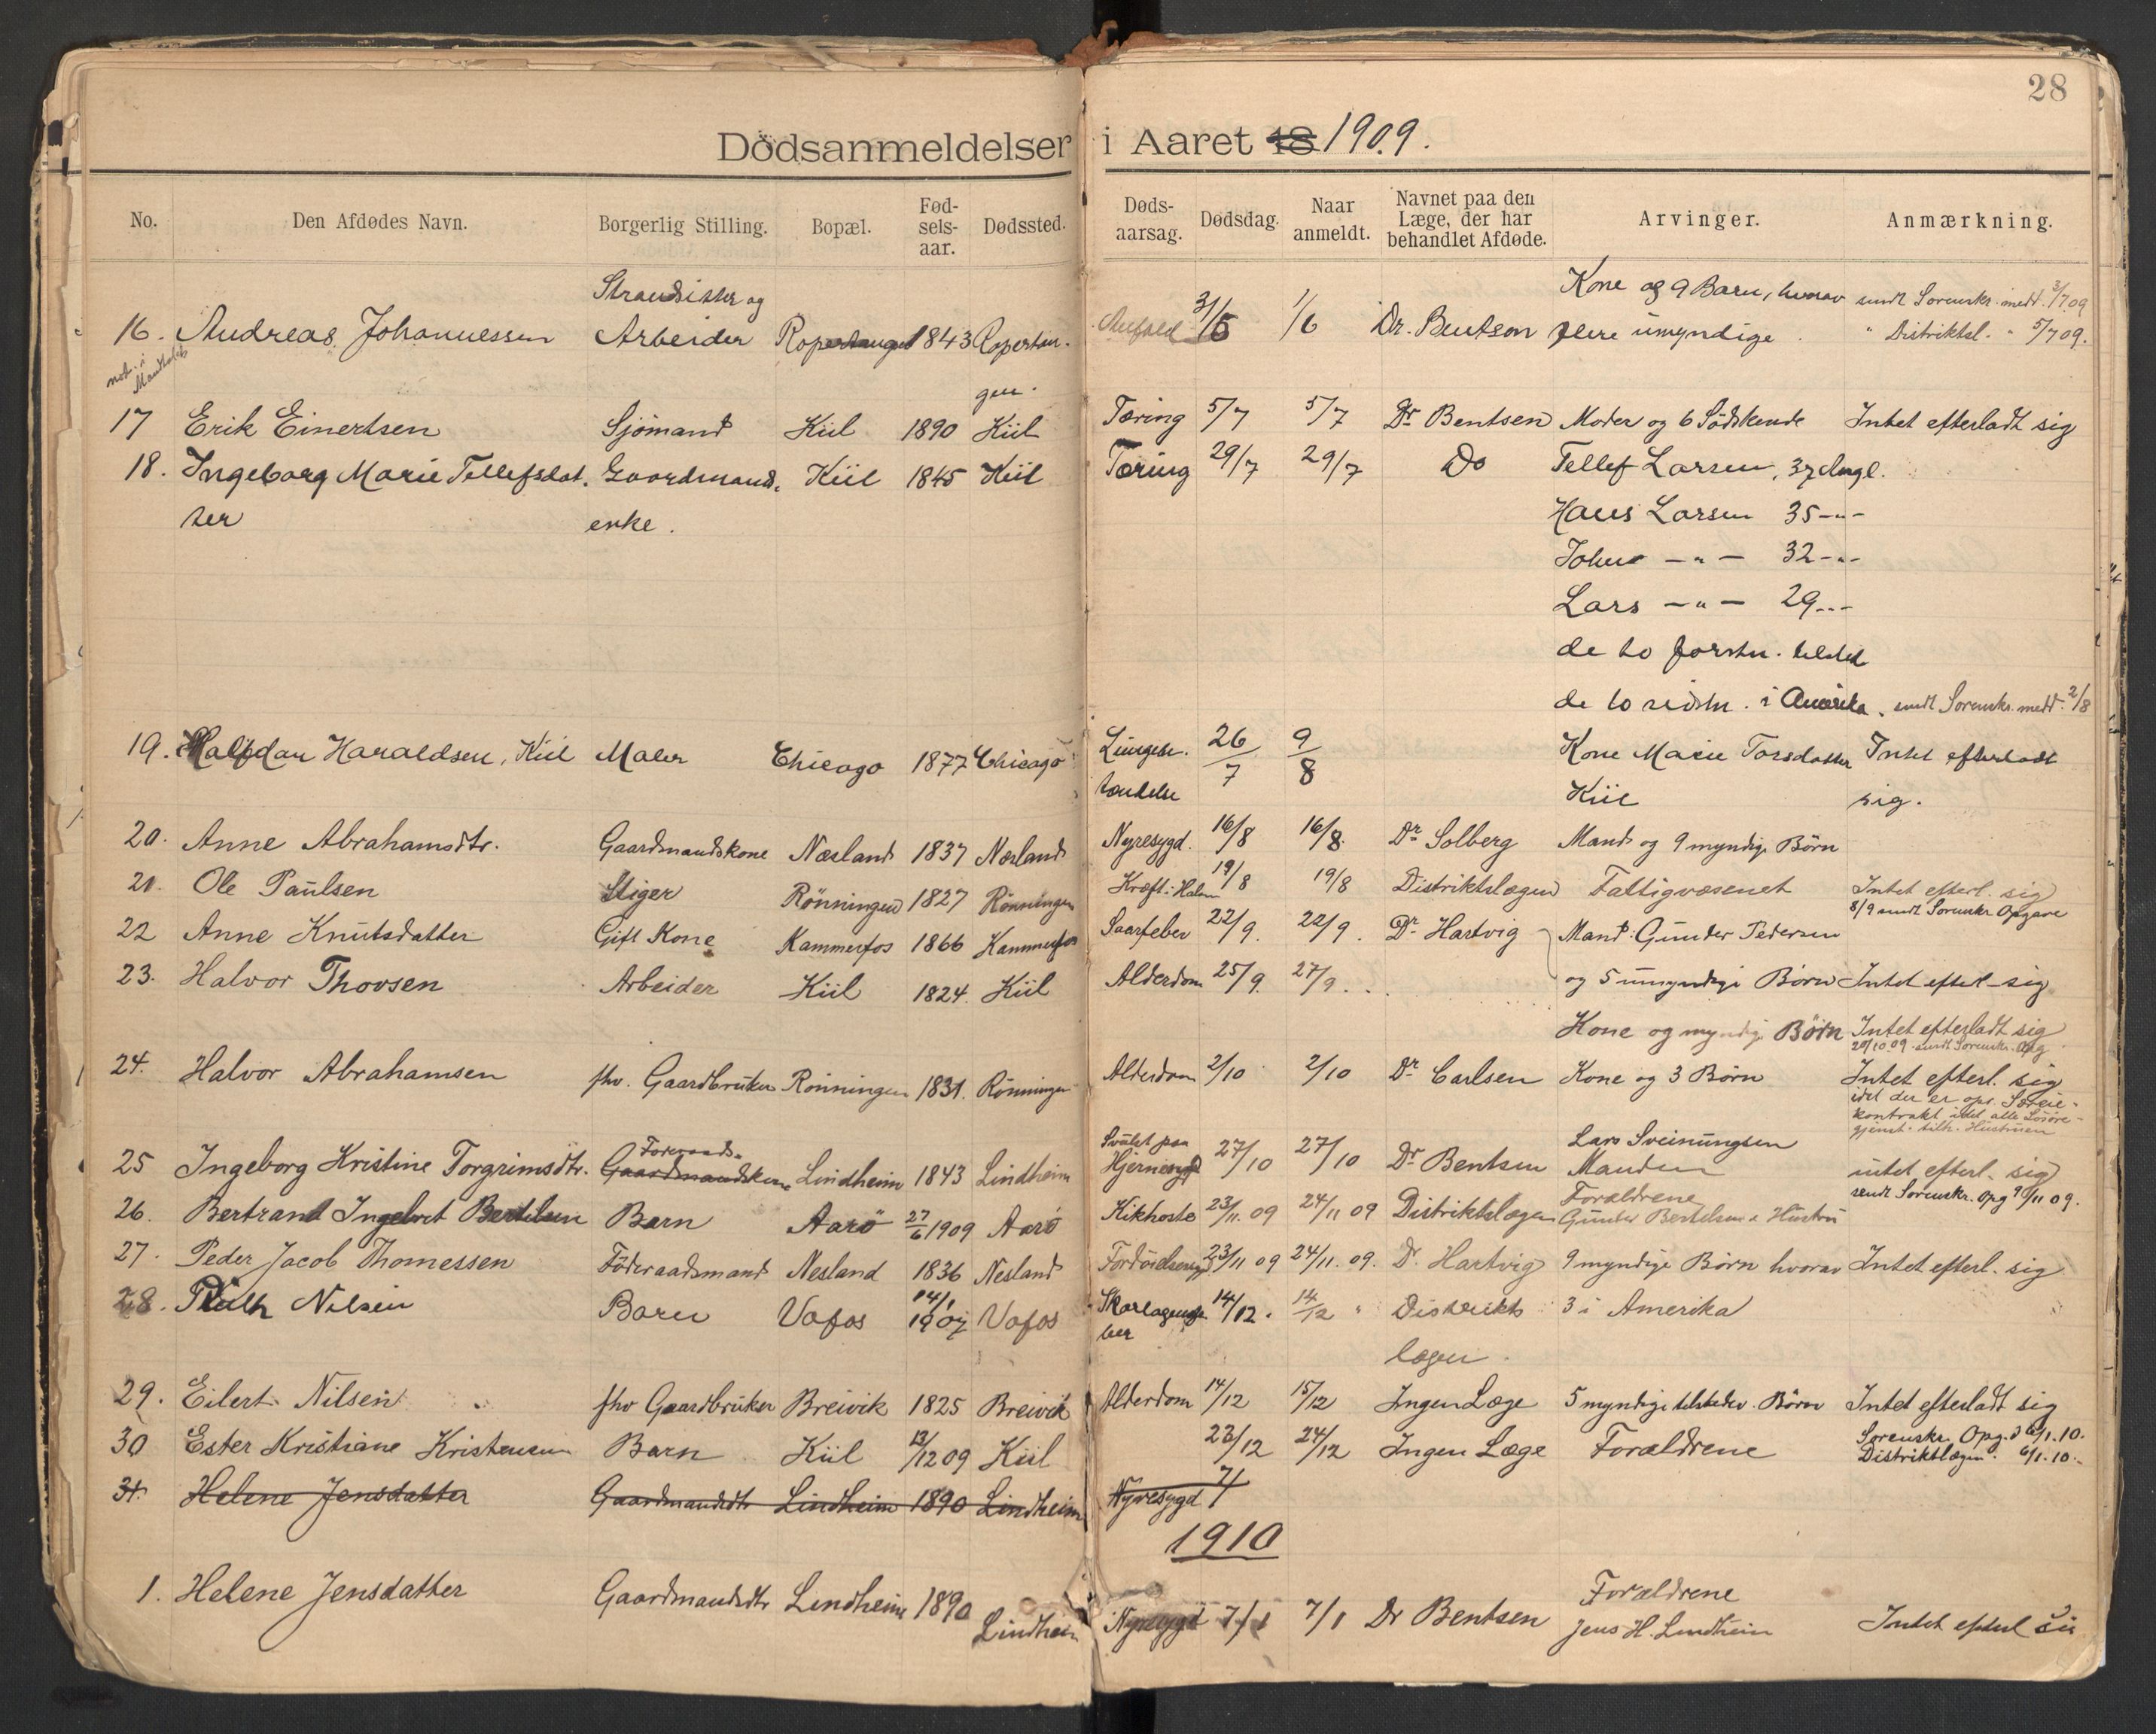 28
Dödsanmeldelser i Aaret 18 1909.
No. Den Afdødes Navn. Borgerlig Stilling. Bopæl. Fød-sels-aar. Dødssted. Døds-aarsag. Dødsdag. Naar anmeldt. Navnet paa den Læge, der har behandlet Afdøde. Arvinger. Anmærkning.
Strandsitter og Kone og 9 Børn, hvorav sendt Sorenskr. medd. 3/7 09
16. Andreas Johannessen Arbeider 1843 31/5 1/6 Dr. Bentson flere umyndige " Distriktsl. " 5/7 09.
not. i
gen.
17 Erik Einertsen Sjömand Kiil 1890 Kiil Tæring 5/7 5/7 Dr Bentsen Moder og 6 Södskende Intet efterladt sig
18. Ingeborg Marie Tellefsdat. Gaardmands. Kiil 1845 Kiil Tæring 29/7 29/7 Do Tellef Larsen, 37 Aar gl.
ter enke. Hans Larsen 35 -"-
Johan -"- 32 -"-
Lars -"- 29 -"-
de to forstn. tilsted
de to sidstn. i Amerika. sendt Sorenskr. medd. 2/8
19. Halfdan Haraldsen, Kiil Maler Chicago 1877 Chicago Lunge. 26/7 9/8 Kone Marie Torsdatter Intet efterladt
tændelse Kiil sig.
20. Anne Abrahamsdtr. Gaardmandskone Næsland 1837 Næsland Nyresygd. 16/8 16/8 Dr Solberg Mand og 9 myndige Börn
21. Ole Paulsen Stiger Rönningen 1827 Rönningen Kræft i Halsen 19/8 19/8 Distriktslægen Fattigvæsenet Intet efterl. sig
8/9 sendt Sorenskr. Opgave
22 Anne Knutsdatter Gift Kone Kammerfos 1866 Kammerfos Saarfeber 22/9. 22/9. Dr Hartvig Mand: Gunder Pedersen
23. Halvor Thovsen Arbeider Kiil 1824. Kiil Alderdom 25/9. 27/9. og 5 umyndige Börn Intet efterl. sig
Kone og myndige Börn Intet efterladt sig
20/10 09. sendt Sorenskr. Opg
24. Halvor Abrahamsen fhv. Gaardbruker Rönningen 1831. Rönningen Alderdom 2/10 2/10 Dr Carlsen Kone og 3 Börn Intet efterl. sig
idet der er opr. Særeie-
kontrakt idet alle Lösöre-
gjenst. tilh. Hustruen
Foeraads- Svulst paa Lars Sveinungsen
25 Ingeborg Kristine Torgrimsdtr. Gaardmandskone Lindheim 1843 Lindheim 27/10 27/10 Dr Bentsen Manden intet efterl. sig
sendt Sorenskr. Opg 9/11 09.
26. Bertrand Ingelvet Bertelsen Barn Aarö 27/6 1909 Aarö Kikhoste 23/11. 09 24/11 09 Distriktslægen Forældrene
Gunder Bertelsen & Hustru
27. Peder Jacob Thomessen Föderaadsmand Nesland 1836 Nesland 23/11 09 24/11. 09. Dr. Hartvig 9 myndige Börn hvorav Intet efterl. sig
28. Ruth Nilsen Barn Vafos 14/1 1907 Vafos Skarlagensfe 14/12. 14/12 " Distrikts 3 i Amerika
ber lægen.
29. Eilert Nilsen fhv Gaardbruker Breivik 1825 Breivik Alderdom 14/12 15/12 Ingen Læge 5 myndige tilstedev. Börn Intet efterladt sig
30 Ester Kristiane Kristensen Barn Kiil 13/12 09 Kiil 23/12 24/12 Ingen Læge Forældrene Sorenskr. Opg. d 6/1. 10.
Distriktslægen. 6/1. 10.
31. Helene Jensdatter Gaardmandsdtr Lindheim 1890 Lindheim Nyresygd 7/
1910
1. Helene Jensdatter Gaardmandsdtr Lindheim 1890 Lindheim Nyresygd 7/1 7/1 Dr Bentsen Forældrene
Jens H. Lindheim Intet efterl sig